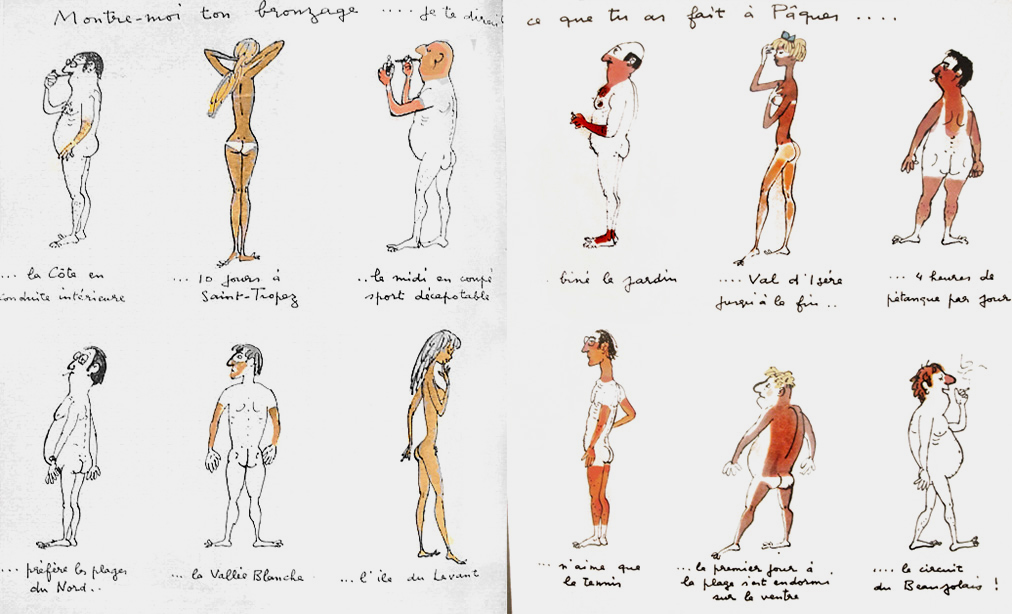 Montre-moi ton bronzage .... je te dirai ce que tu as fait à Pâques ....
... la Côte en
conduite intérieure
... 10 jours à
Saint-Tropez
.. le midi en coupé
sport décapotable
. biné le jardin
.... Val d'Isère
jusqu'à la fin ..
... 4 heures de
pétanque par jour
... préfère les plages
du Nord..
... la Vallée Blanche
... l'île du Levant
... n'aime que
le tennis
... le premier jour à
la plage s'est endormi
sur le ventre
.... le circuit
du Beaujolais !